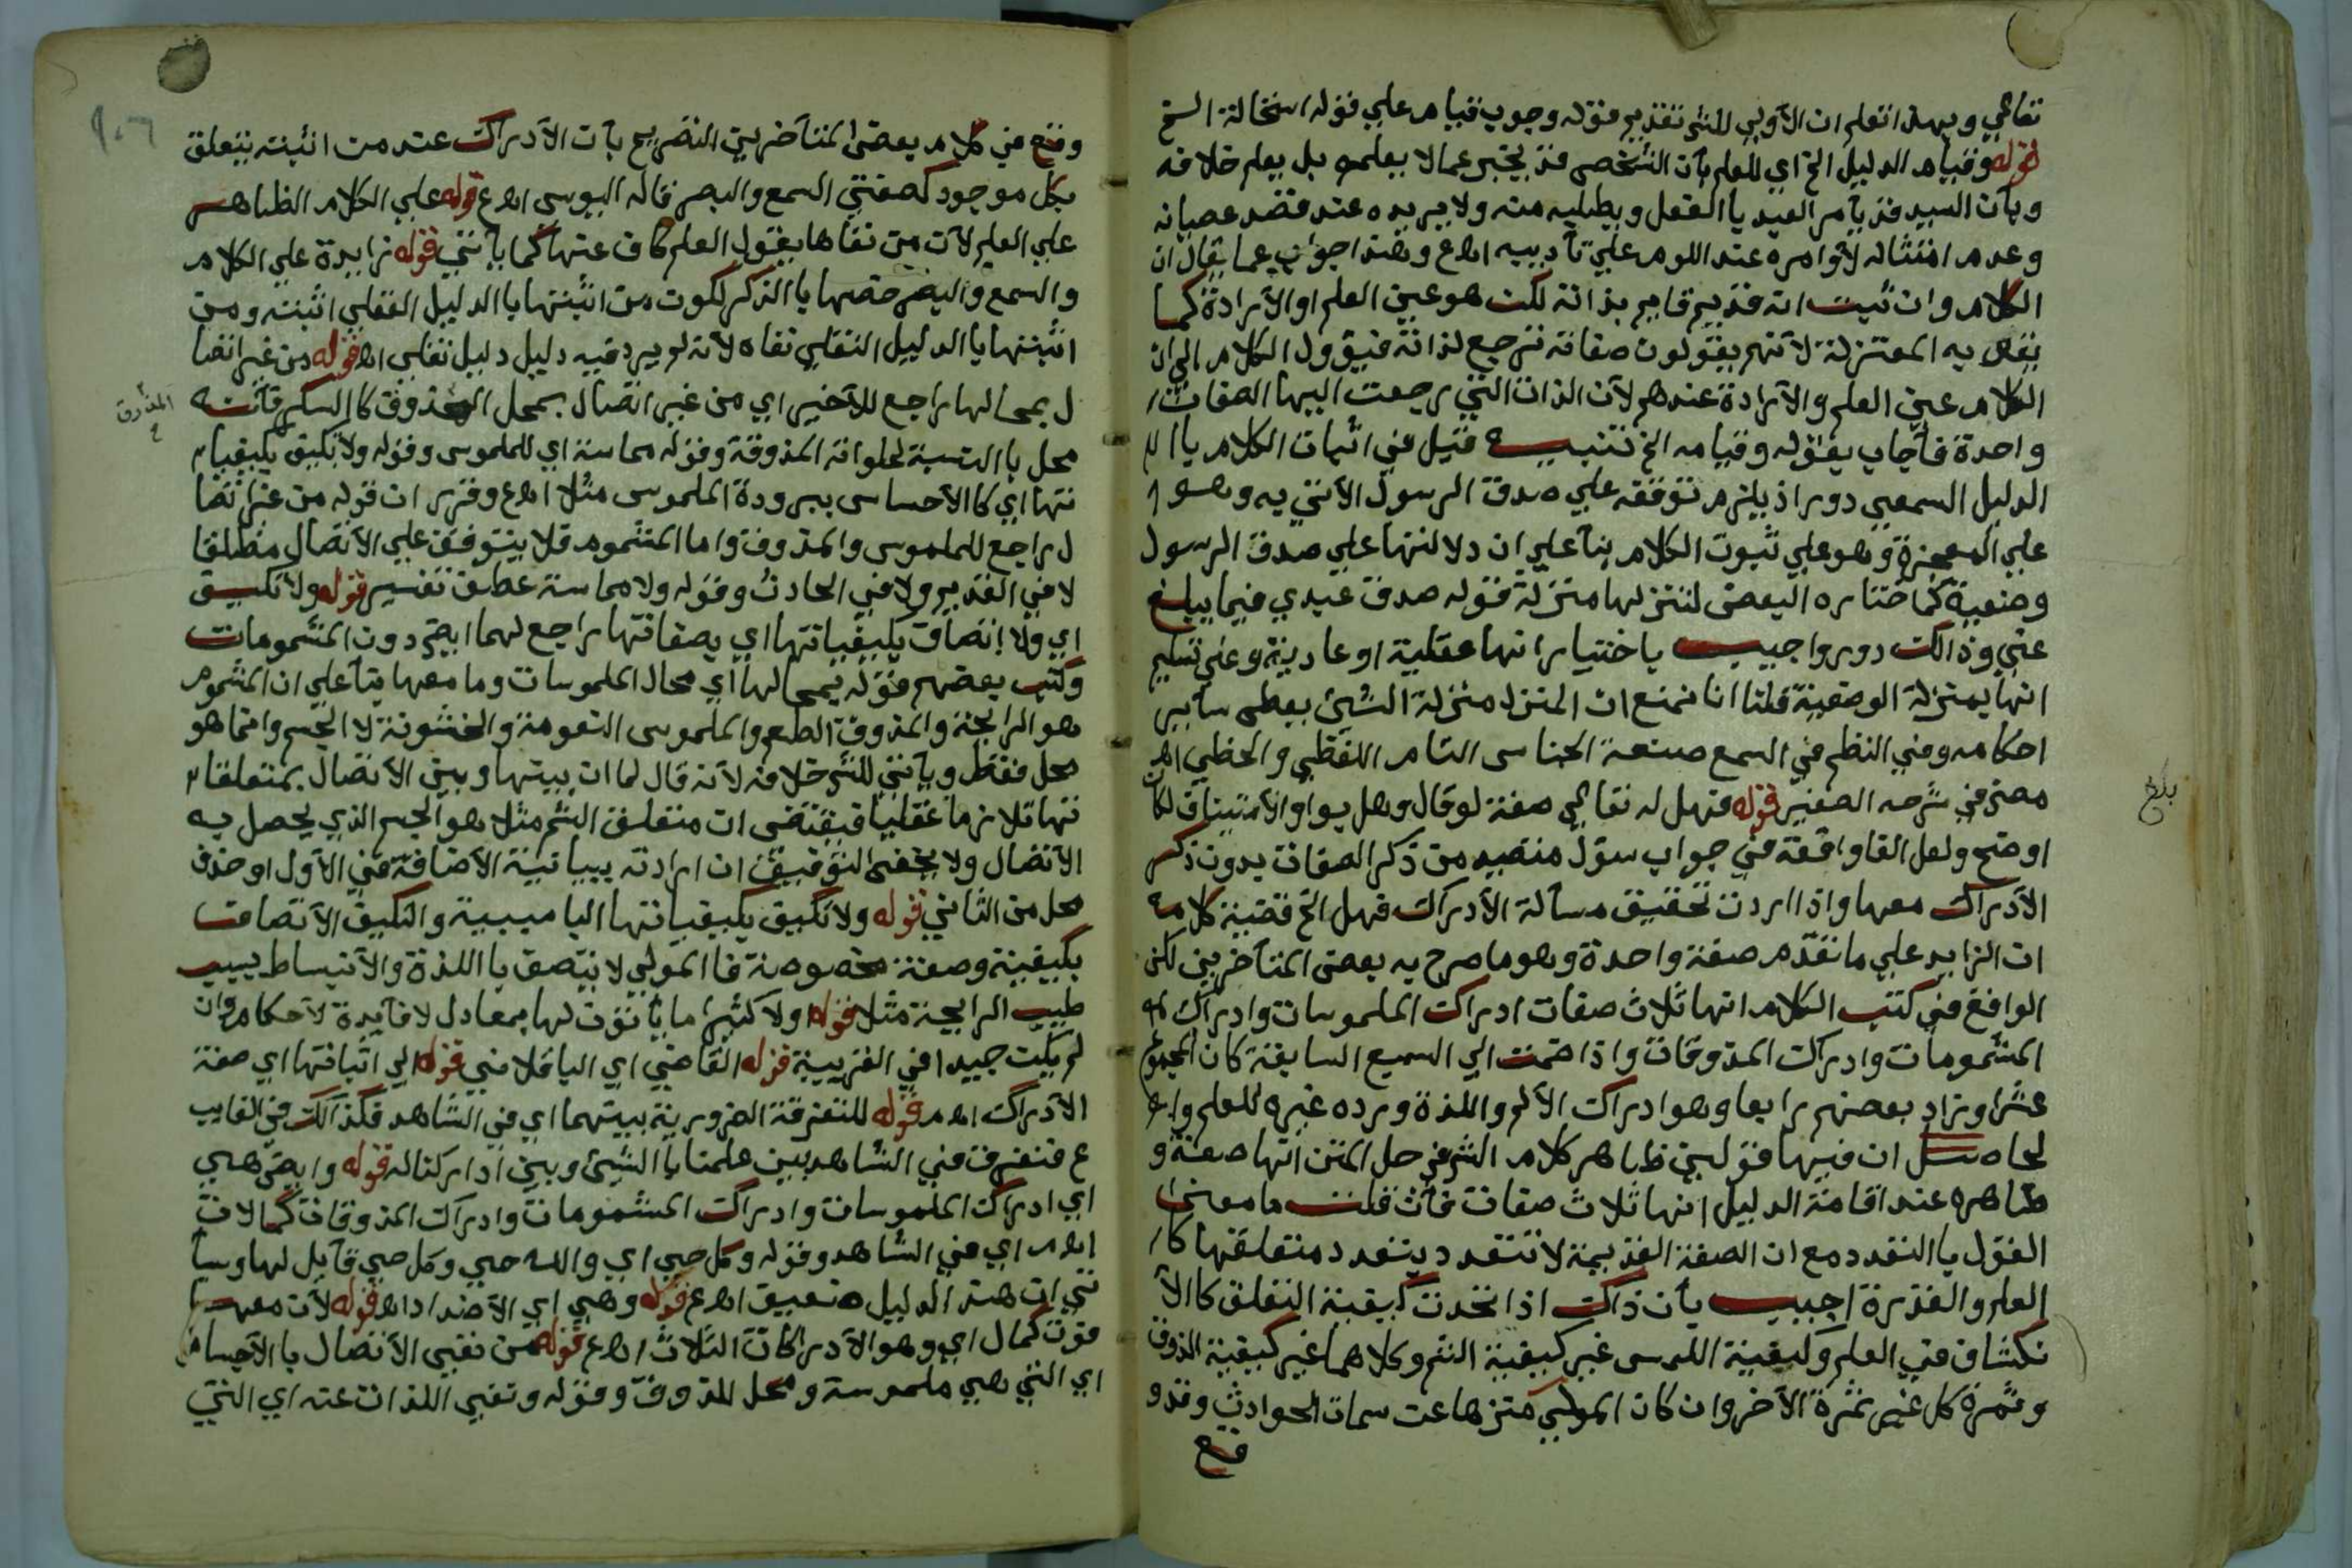 تعالي وبهذا تعلم ان الأولي للش تقديم قوله وجوب قيام علي قوله استحالة الخ
قوله وقيام الدليل الخ اي للعلم بأن الشخص قد يخبر عما لا يعلمه بل يعلم خلافه
وبأن السيد قد يأمر العبد با الفعل ويطلبه منه ولا يريده عند قصد عصيانه
وعدم امتثاله لأوامره عند اللوم علي تأديبه اهع وهذا جواب عما يقال ان
الكلام وان ثبت انه قديم قايم بذاته لكن هو عين العلم او الأرادة كما
يقول به المعتزلة لأنهم يقولون صفاته ترجع لذاته فيؤول الكلام الي ان
الكلام عين العلم والأرادة عندهم لأن الذات التي رجعت اليها الصفات
واحدة فأجاب بقوله وقيامه الخ تنبيه قيل في اثبات الكلام با ال
الدليل السمعي دور اذ يلزم توقفه علي صدق الرسول الأتي به وهو
علي المعجزة وهو علي ثبوت الكلام بنآ علي ان دلالتها علي صدق الرسول
وضعية كما ختاره البعض لتنزلها منزلة قوله صدق عبدي فيما يبلغ
عني وذالك دور واجيب باختيار انها عقلية او عادية وعلي تسليم
انها بمنزلة الوضعية قلنا انا نمنع ان المنزل منزلة الشيئ يعطي سآير
احكامه وفي النظم في السمع صنعة الجناس التام اللفظي والخطي اهـ
مص في شرحه الصغير قوله فهل له تعالي صفة لو قال وهل بواو الأستيناف لكان
اوضح ولعل الفا واقعة في جواب سؤل منصيد من ذكر الصفات بدون ذكر
الأدراك معها واذا اردت تحقيق مسألة الأدراك فهل الخ قضية كلامه
ان الزايد علي ما تقدم صفة واحدة وهو ما صرح به بعض المتأخرين لكن
الواقع في كتب الكلام انها ثلاث صفات ادراك الملموسات وادراك
المشمومات وادراك المذوقات واذا ضمت الي السبع السابقة كان المجموع
عشرا وزاد بعضهم رابعا وهو ادراك الألم واللذة ورده غيره للعلم
لحاصل ان فيها قولين ظاهر كلام الش في حل المتن انها صفة و
ظاهره عند اقامة الدليل انها ثلاث صفات فأن قلت ما معني
القول با التعدد مع ان الصفة القديمة لا تتعدد بتعدد متعلقها كا
العلم والقدرة اجيب بأن ذاك اذا تخدت كيفية التعلق كا الا
نكشاف في العلم وكيفية اللمس غير كيفية الشم وكلاهما غير كيفية الذوق
وثمرة كل غير ثمرة الأخر وان كان المولي متنزها عن سمات الحوادث وقد و
قع
بلغ
وقع في كلام بعض المتأخرين التصريح بأن الأدراك عند من اثبته يتعلق
بكل موجود كصفتي السمع والبصر قاله اليوسي اهع قوله علي الكلام الظاهر
علي العلم لأن من نفاها يقول العلم كاف عنها كما يأتي قوله زايدة علي الكلام
والسمع والبصر خصها با الذكر لكون من اثبتها با الدليل العقلي اثبته ومن
اثبتها با الدليل النقلي نفاه لأنه لم يرد فيه دليل دليل نقلي اهـ قوله من غير اتصا
ل بمحالها راجع للأخير اي من غير اتصال بمحل المذوق كا السكر فأنه
محل با النسبة لحلواته المذوقة وقوله مماسة اي للملموس وقوله ولا تكيف بكيفيا
تها اي كا الأحساس ببرودة الملموس مثلا اهع وقرر ان قوله من غير اتصا
ل راجع للملموس والمذوق واما المشموم فلا يتوقف علي الأتصال مطلقا
لا في القديم ولا في الحادث وقوله ولا مماسة عطف تفسير قوله ولا تكيف
اي ولا اتصاف بكيفياتها اي بصفاتها راجع لهما ايض دون المشمومات
وكتب بعضهم قوله بمحالها اي محال الملموسات وما معها بنآ علي ان المشموم
هو الرايحة والمذوق الطعم والملموس النعومة والخشونة لا الجسم وانما هو
محل فقط ويأتي للش خلافه لأنه قال لما ان بينها وبين الأتصال بمتعلقا
تها تلازما عقليا فيقتضي ان متعلق الشم مثلا هو الجسم الذي يحصل به
الأتصال ولا يخفي التوفيق ان اردت ببيانية الأضافة في الأول او حذف
محل من الثاني قوله ولا تكيف بكيفياتها البا سببية والتكيف الأتصاف
بكيفية وصفة مخصوصة فا المولي لا يتصف با اللذة والأنبساط بسبب
طيب الرايحة مثلا قوله ولا كثيرا ما يأتون لها بمعادل لا فآيدة لأحكام وان
لم يكن جيدا في الغريبة قوله القاضي اي الباقلاني قوله الي اثباتها اي صفة
الأدراك اهـم قوله للتفرقة الضرورية بينهما اي في الشاهد فكذالك في الغايب
ع فنفرق في الشاهد بين علمنا با الشيئ وبين ادراكنا له قوله وايض هي
اي ادراك الملموسات وادراك المشمومات وادراك المذوقات كمالات
اهـم اي في الشاهد وقوله وكل حي اي والله حي وكل حي قآبل لها وسيأ
تي ان هذا الدليل ضعيف اهع قوله وهي اي الأضداد اهـ قوله لأن معهـ
فوت كمال اي وهو الأدراكات الثلاث اهع قوله من نفي الأتصال با الأجسام
اي التي هي ملموسة ومحل للمذوق وقوله ونفي اللذات عنه اي التي
المذوق